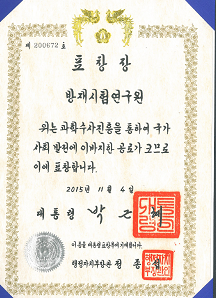 제 200672 호
표 창 장
방재시험연구원
위는 과학수사진흥을 통하여 국가
사회 발전에 이바지한 공로가 크므로
이에 표창합니다.
2015년 11월 4일
대통령 박근혜
이 증을 대통령표창부에 기재합니다.
행정자치부장관 정종섭